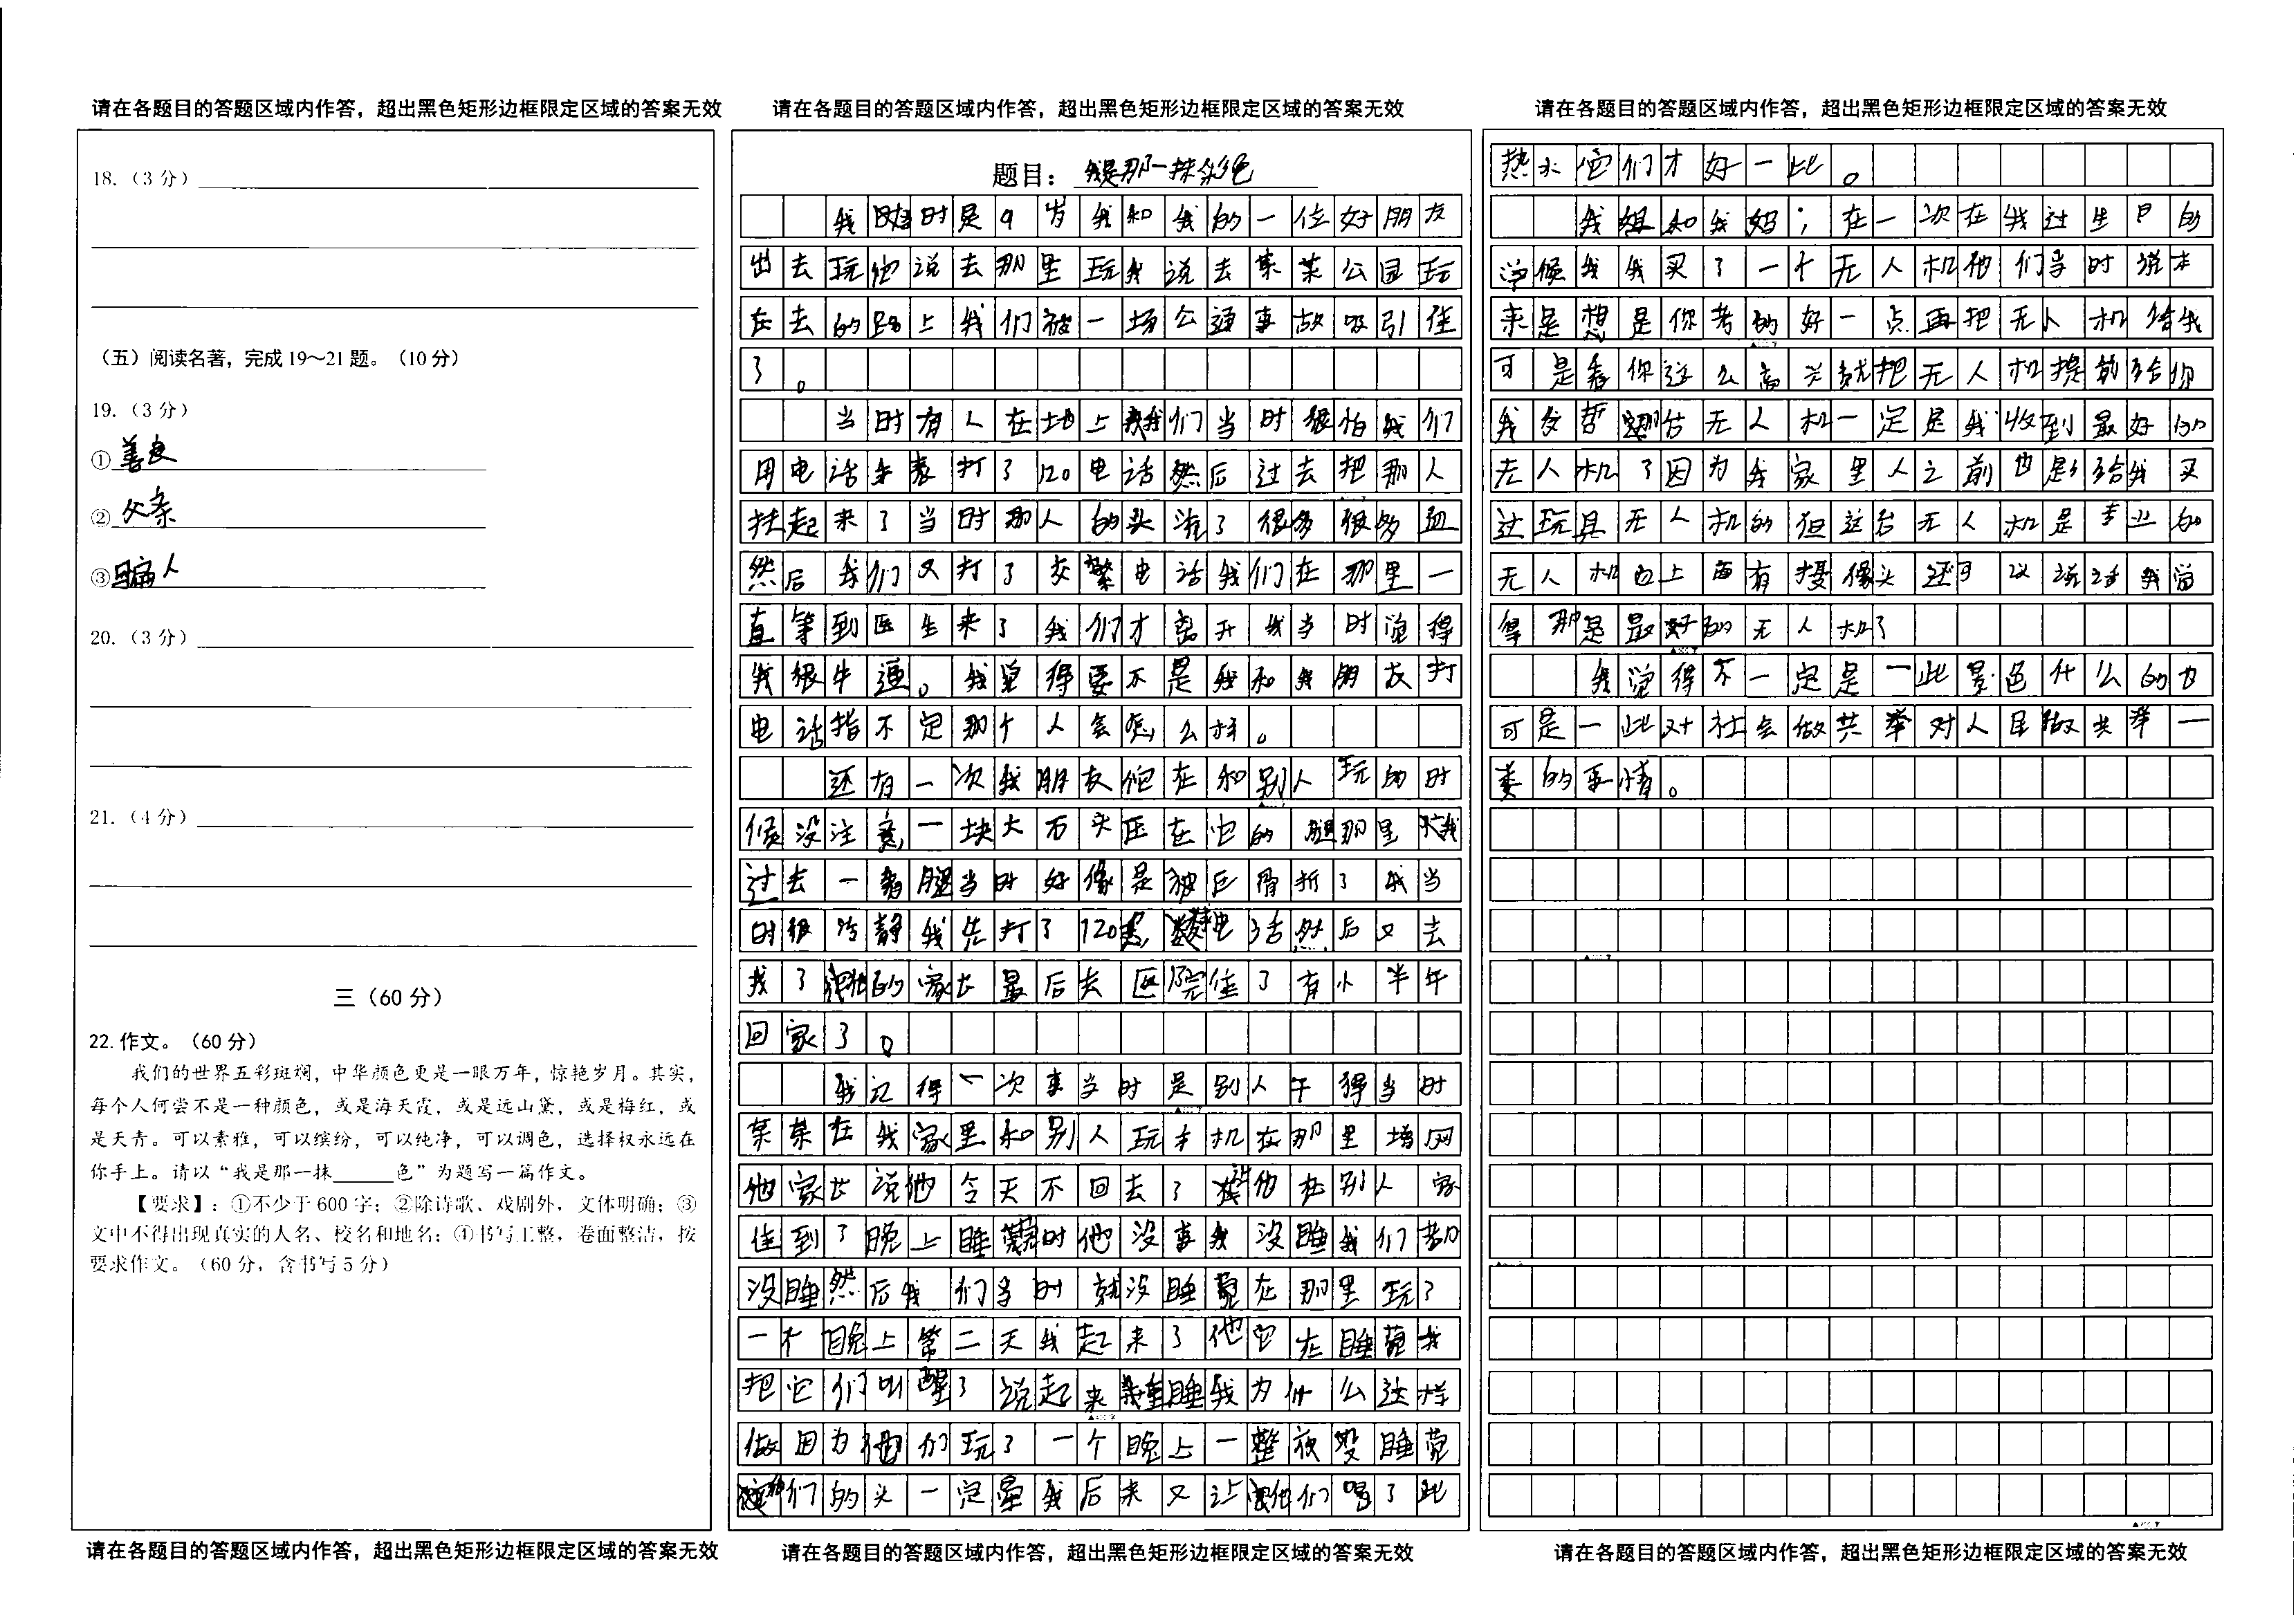 请在各题目的答题区域内作答，超出黑色矩形边框限定区域的答案无效
18.（3 分）
（五）阅读名著，完成 19～21 题。（10 分）
19.（3 分）
①善良
②父亲
③骗人
20.（3 分）
21.（4 分）
三（60 分）
22.作文。（60 分）
我们的世界五彩斑斓，中华颜色更是一眼万年，惊艳岁月。其实，
每个人何尝不是一种颜色，或是海天霞，或是远山黛，或是梅红，或
是天青。可以素雅，可以缤纷，可以纯净，可以调色，选择权永远在
你手上。请以“我是那一抹______色”为题写一篇作文。
【要求】：①不少于 600 字；②除诗歌、戏剧外，文体明确；③
文中不得出现真实的人名、校名和地名；④书写工整，卷面整洁，按
要求作文。（60 分，含书写 5 分）
请在各题目的答题区域内作答，超出黑色矩形边框限定区域的答案无效
请在各题目的答题区域内作答，超出黑色矩形边框限定区域的答案无效
题目：我是那一抹彩色
我时是9岁我和我的一位好朋友
出去玩他说去那里玩我说去某某公园玩
在去的路上我们被一场公通事故吸引住
了。
当时有人在地上我们当时很怕我们
用电话手表打了120电话然后过去把那人
扶起来了当时那人的头流了很多很多血
然后我们又打了交警电话我们在那里一
直等到医生来了我们才离开我当时觉得
我很牛逼。我觉得要不是我和我朋友打
电话指不定那个人会怎么样。
还有一次我朋友他在和别人玩的时
候没注意一块大石头压在它的腿那里我
过去一看腿当时好像是被压骨折了我当
时很冷静我先打了120电话然后又去
找了的家长最后去医院住了有小半年
回家了。
我记得一次事当时是别人午得当时
某某在我家里和别人玩手机在那里增网
他家长说他今天不回去了让他在别人家
住到了晚上睡觉时他没事我没睡我们都
没睡然后我们当时就没睡觉在那里玩了
一个晚上第二天我起来了他它在睡觉我
把它们叫醒了说起来睡我为什么这样
做因为他们玩了一个晚上一整夜没睡觉
他们的头一定晕我后来又让他们喝了此
请在各题目的答题区域内作答，超出黑色矩形边框限定区域的答案无效
请在各题目的答题区域内作答，超出黑色矩形边框限定区域的答案无效
热水它们才好一此。
我姐和我妈；在一次在我过生日的
时候我我买了一个无人机他们当时说本
来是想是你考的好一点再把无人机给我
可是看你这么高兴就把无人机提前给你
我发誓那台无人机一定是我收到最好的
无人机了因为我家里人之前也是给我买
过玩具无人机的但这台无人机是专业的
无人机上面有摄像头还可以说话我觉
得那是最好的无人机了
我觉得不一定是一此景色什么的也
可是一此对社会做共举对人民做共举一
类的事情。
请在各题目的答题区域内作答，超出黑色矩形边框限定区域的答案无效